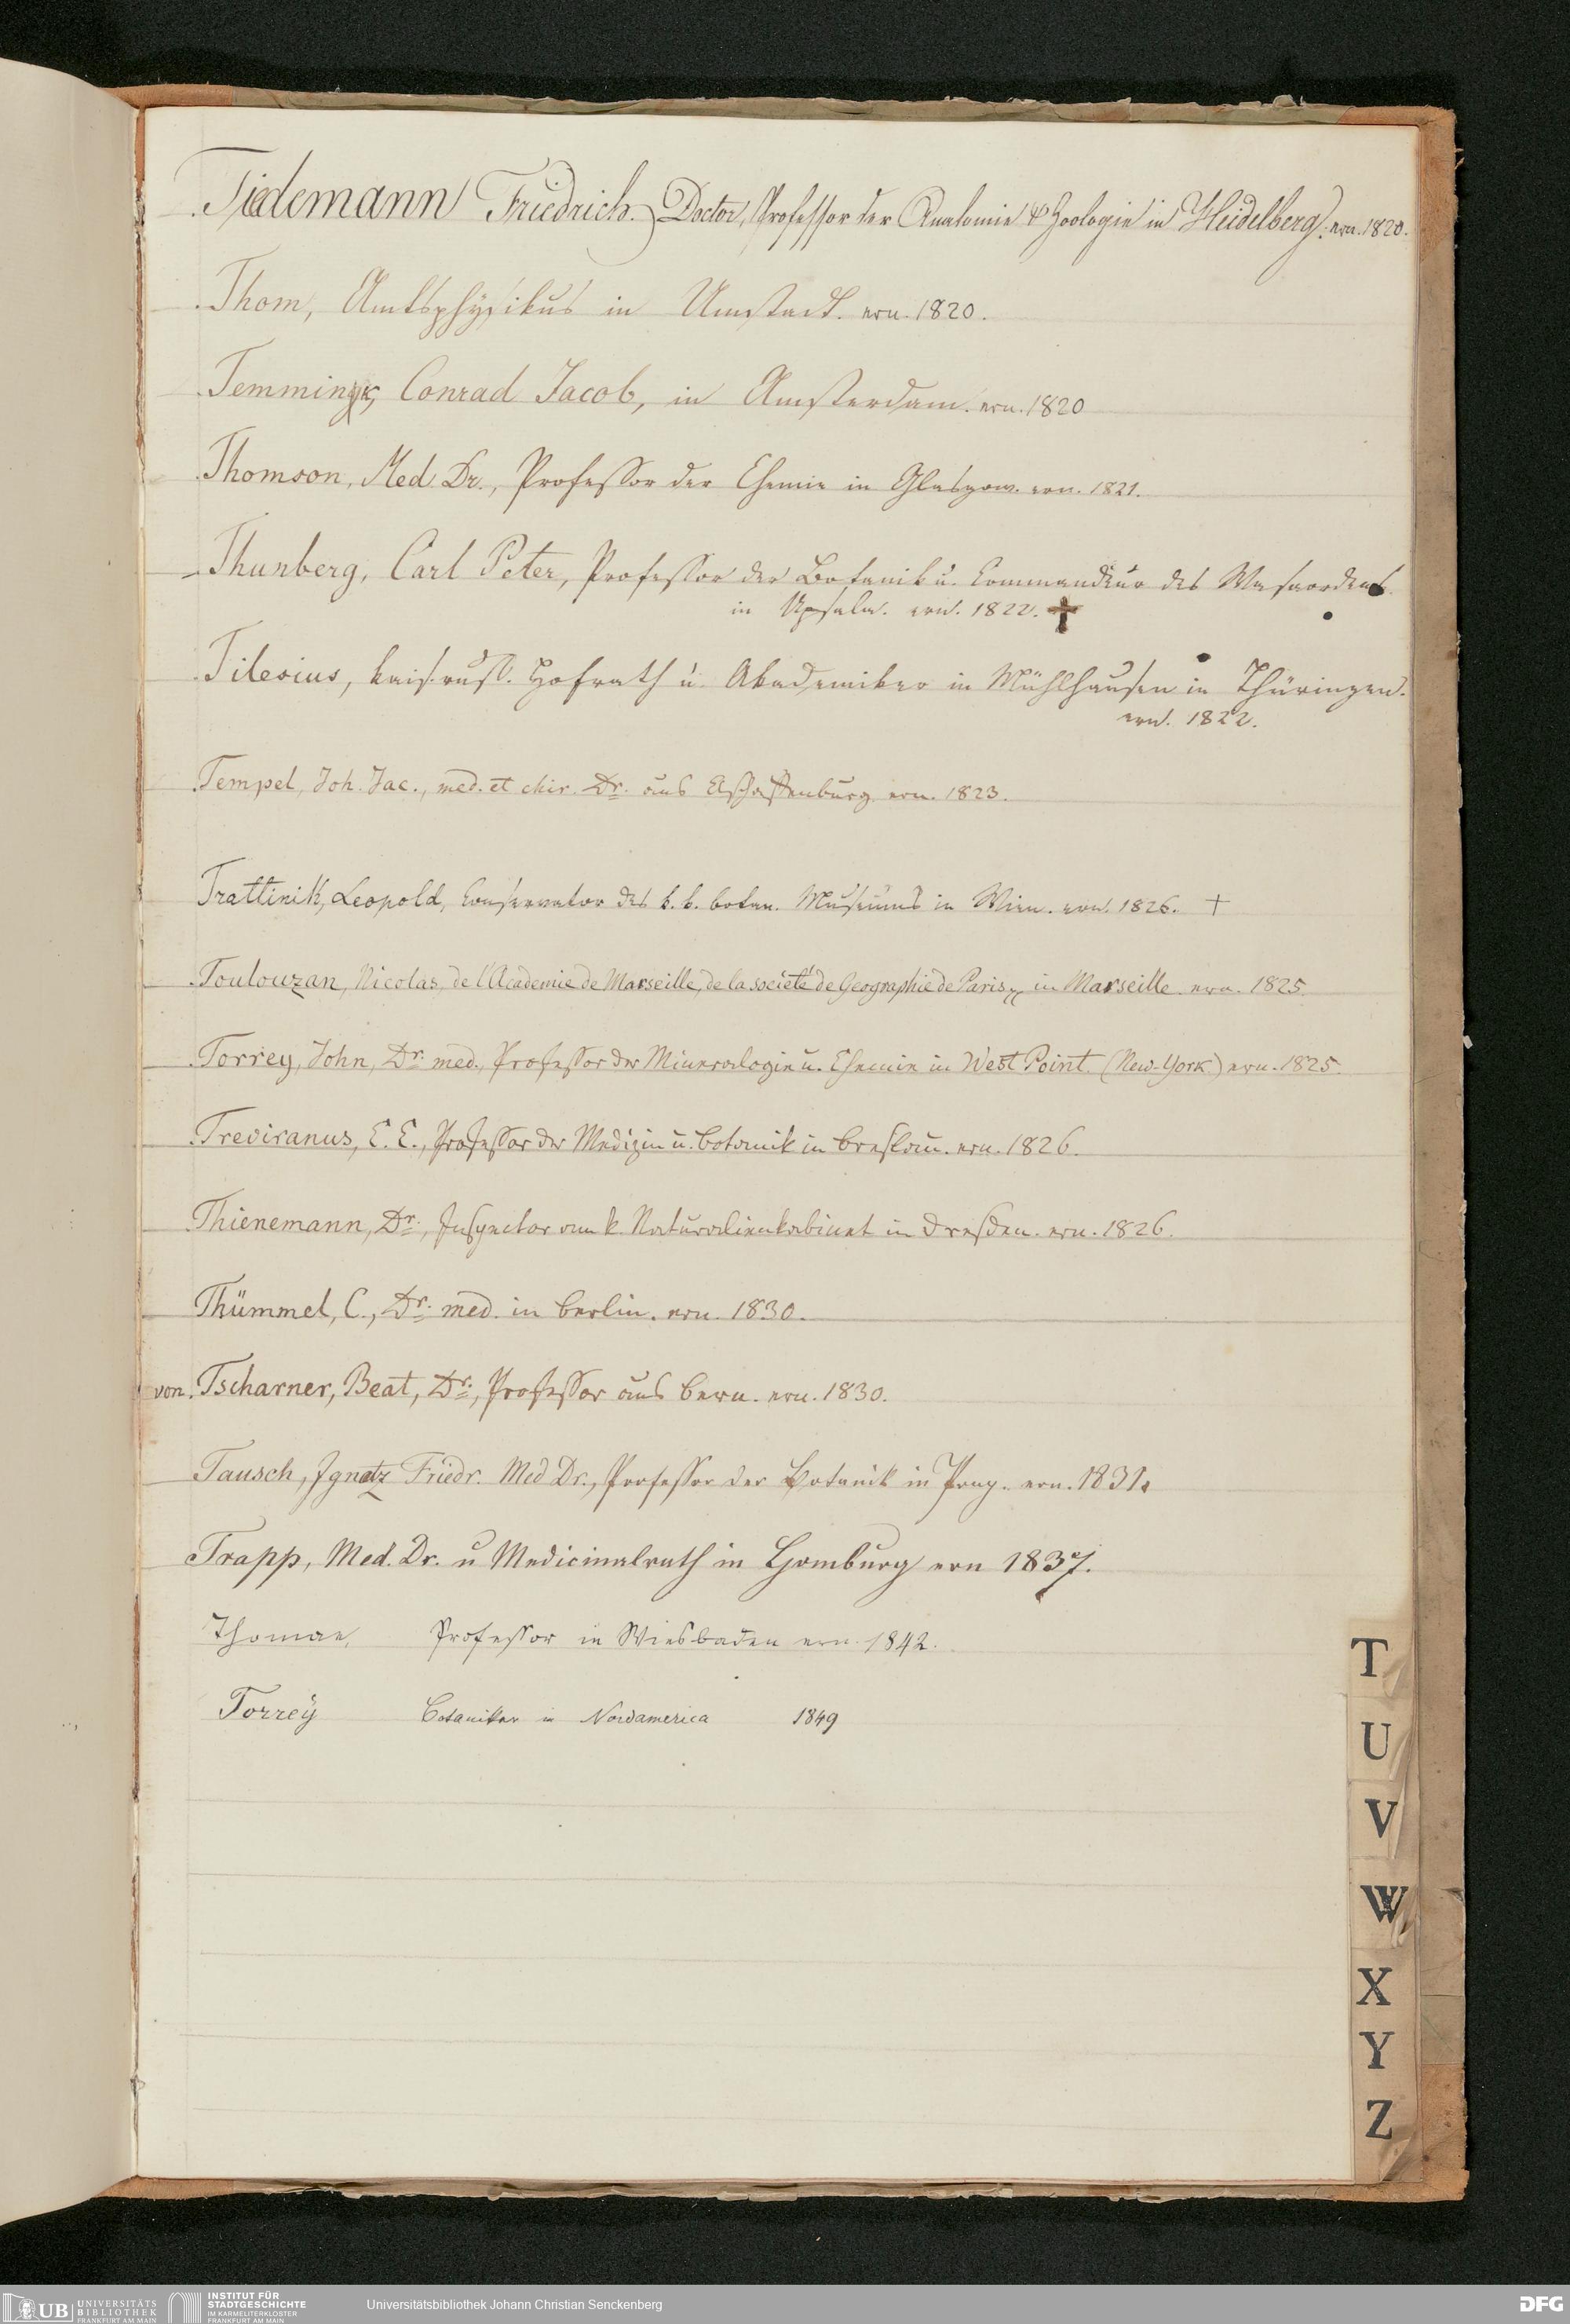 Tiedemann Friedrich. Doctor, Professor der Anatomie & Zoologie in Heidelberg. ern. 1820.
Thom, Amtsphysikus in Umstadt. ern. 1820.
Temmingk, Conrad Jacob, in Amsterdam. ern. 1820
Thomson, Med. Dr., Professor der Chemie in Glasgow. ern. 1821.
Thunberg, Carl Peter, Professor der Botanik u. Commandeur des Wasaordens.
in Upsala. ern. 1822. †
Tilesius, kais. russ. Hofrath u. Akademiker in Mühlhausen in Thüringen.
ern. 1822.
Tempel, Joh. Jac., med. et chir. Dr. aus Aschaffenburg ern. 1823.
Trattinik, Leopold, Conservator des k. k. botan. Museums in Wien. ern. 1826. †
Toulouzan, Nicolas, de l'Academie de Marseille, de la societé de Geographie de Paris, in Marseille ern. 1825.
Torrey, John, Dr. med., Professor der Mineralogie u. Chemie in West Point. (New-York) ern. 1825.
Treviranus, C. C., Professor der Medizin u. Botanik in Breslau. ern. 1826.
Thienemann, Dr., Inspector am k. Naturalienkabinet in Dresden. ern. 1826.
Thümmel, C., Dr. med. in Berlin. ern. 1830.
von Tscharner, Beat, Dr., Professor aus Bern. ern. 1830.
Tausch, Ignatz Friedr. Med Dr., Professor der Botanik in Prag. ern. 1831.
Trapp, Med. Dr. u Medicinalrath in Homburg ern 1837.
Thomae, Professor in Wiesbaden ern. 1842.
Torrey Botaniker in Nordamerica 1849
T
U
V
W
X
Y
Z
UB UNIVERSITÄTS
BIBLIOTHEK
FRANKFURT AM MAIN
INSTITUT FÜR
STADTGESCHICHTE
IM KARMELITERKLOSTER
FRANKFURT AM MAIN
Universitätsbibliothek Johann Christian Senckenberg
DFG